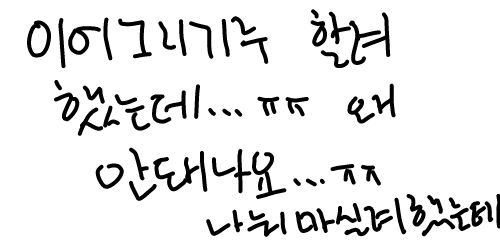 이어그리기누 할려
했는데... ㅠㅠ 왜
안돼나요... ㅠㅠ
나눠마실려했는데